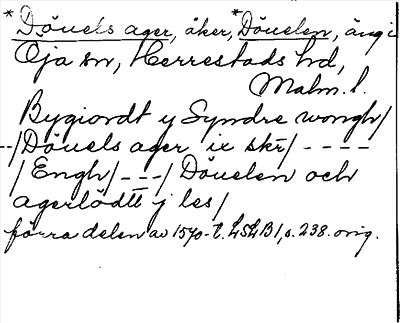 *Döuels ager, åker, *Döuelen, äng i
Öja sn, Herrestads hd,
Malm. l.
Bygiordt y Syndre wongh/
--/Döuels ager ix skr/ - - - -
/Engh/ - - - / Döuelen och
agerlödtt j les/
förra delen av 1570-t. LSLB1, s. 238. orig.